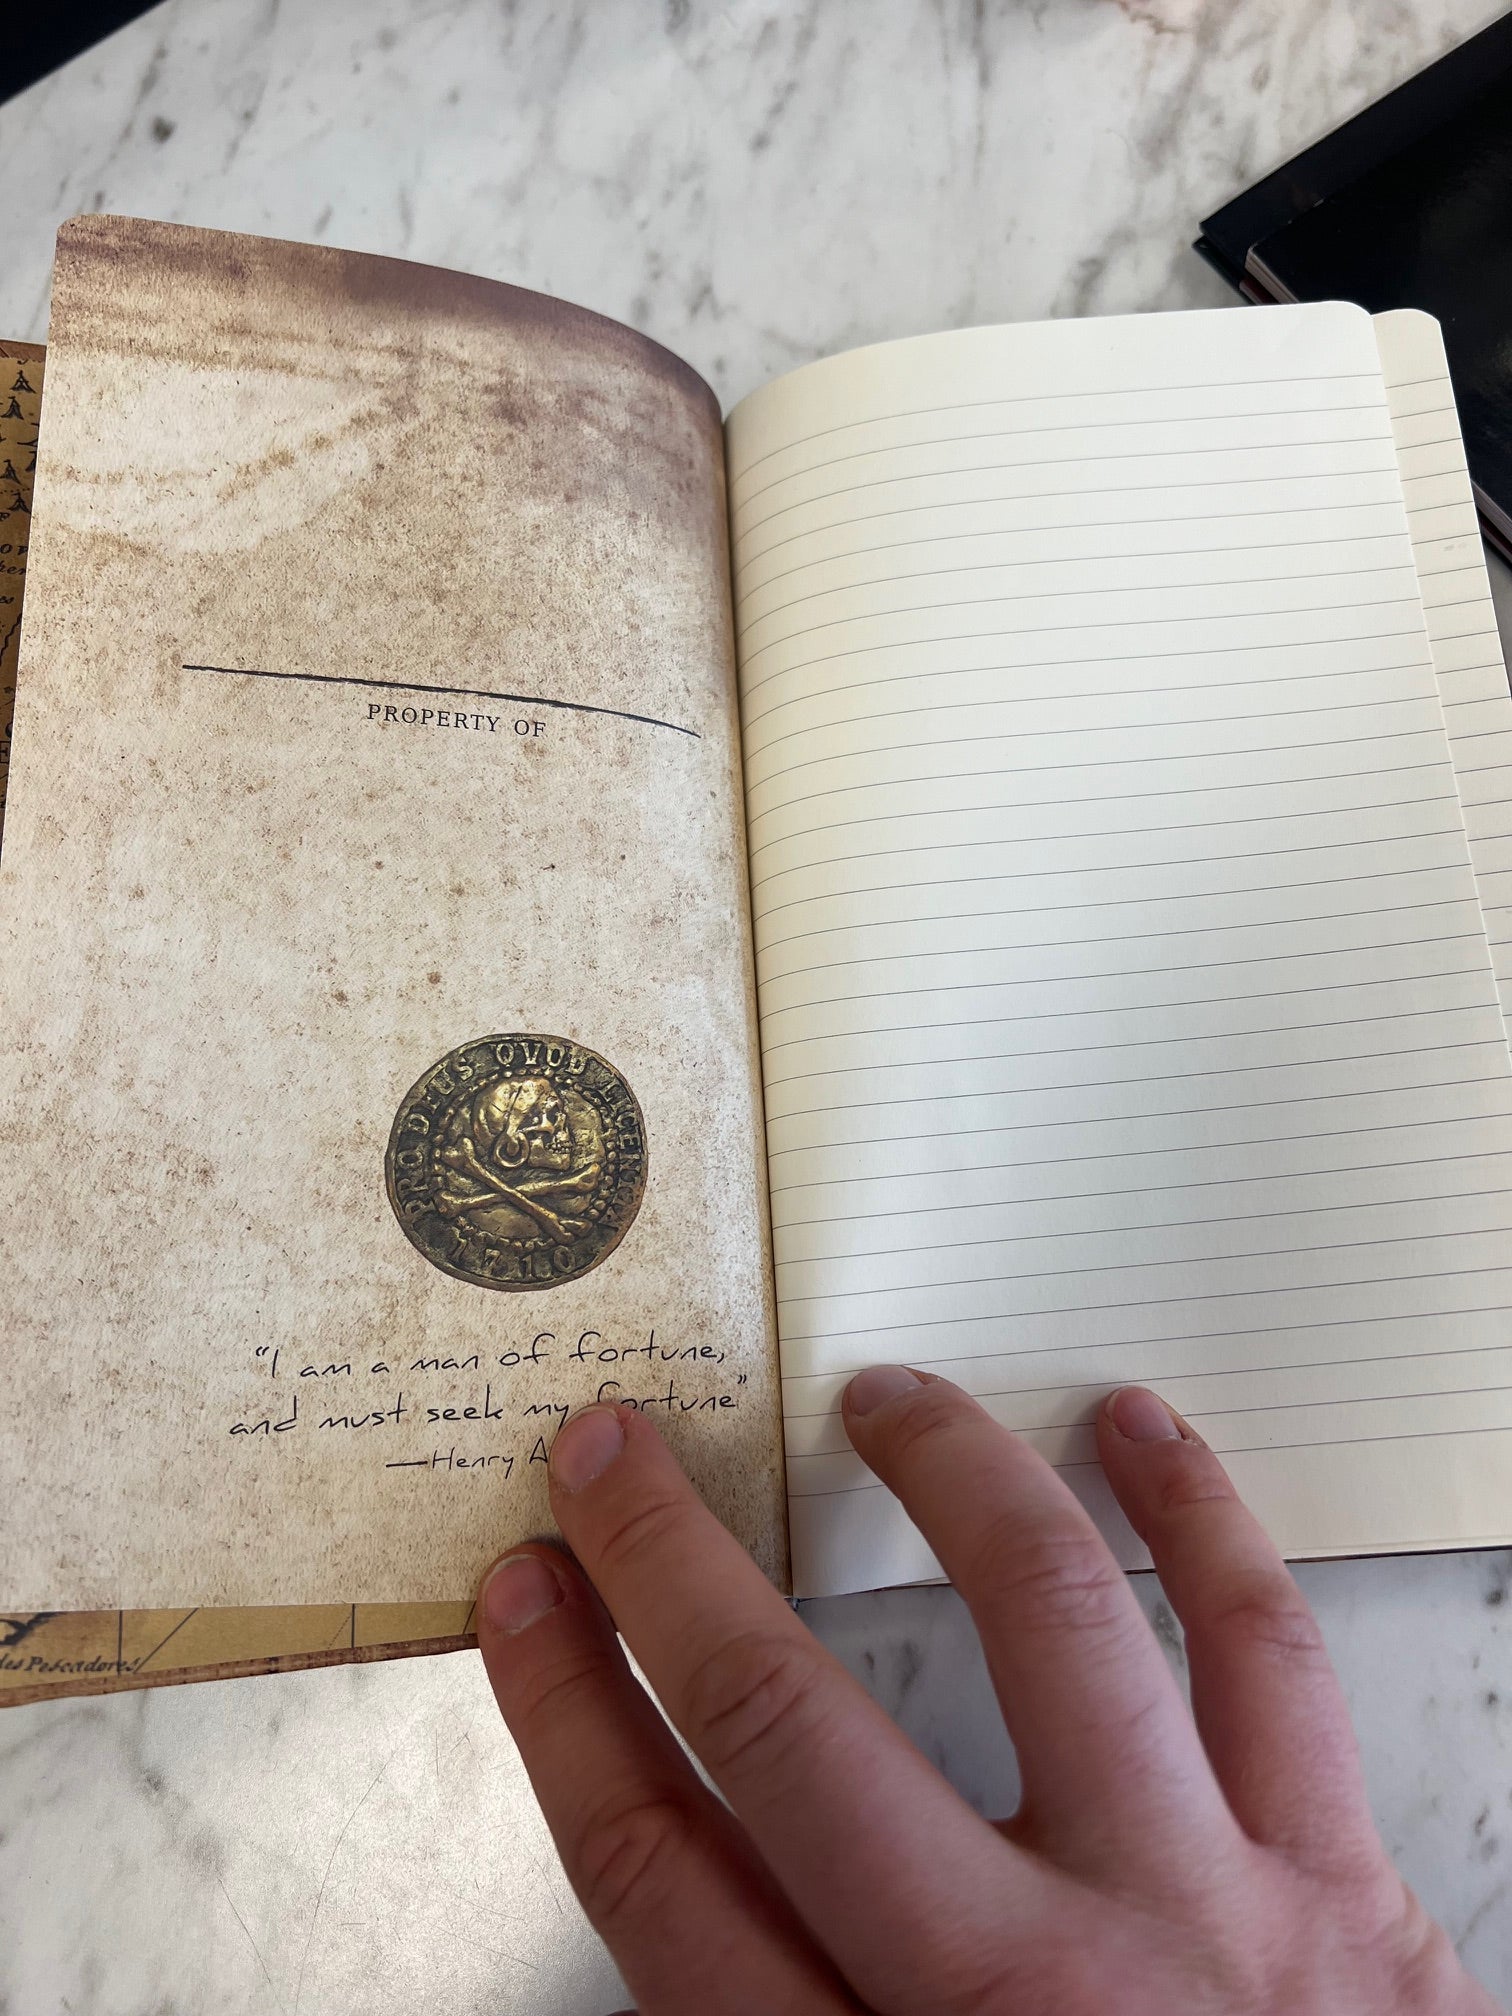 PROPERTY OF
PRO DEUS QVOD LICENTIA
1710
“I am a man of fortune,
and must seek my fortune”
—Henry
des Pescadores